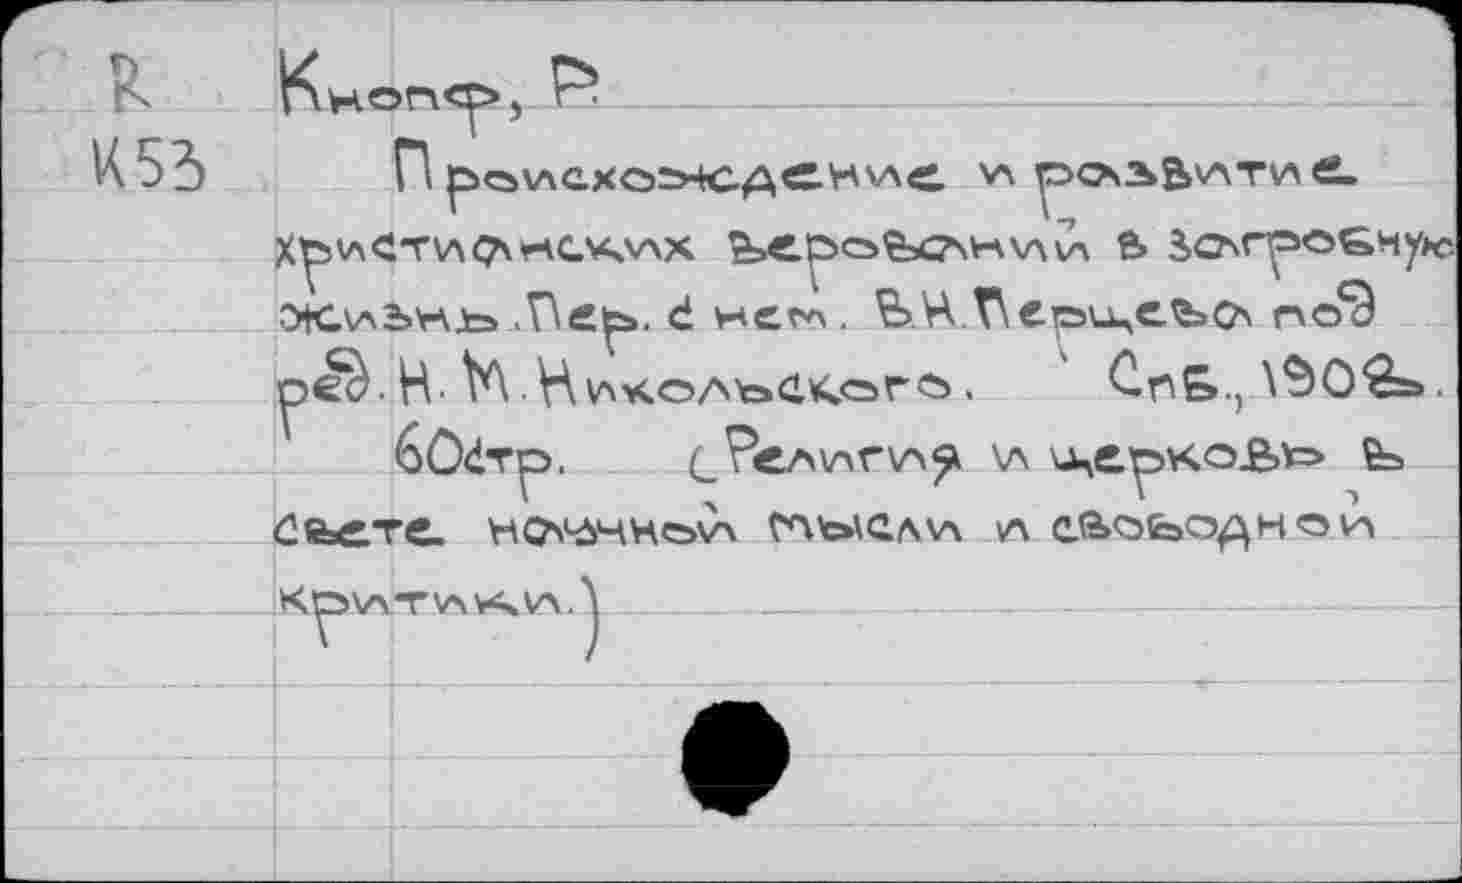 R Кнопф, Р.
К53 Происхождение и развитие
христианских верований в загробную
жизнь. Пер. с нем. В.Н. Перцева под
ред. Н. М. Никольского. СпБ., 1908.
60стр. (Религия и церковь в
свете научной мысли и свободной
критики.)